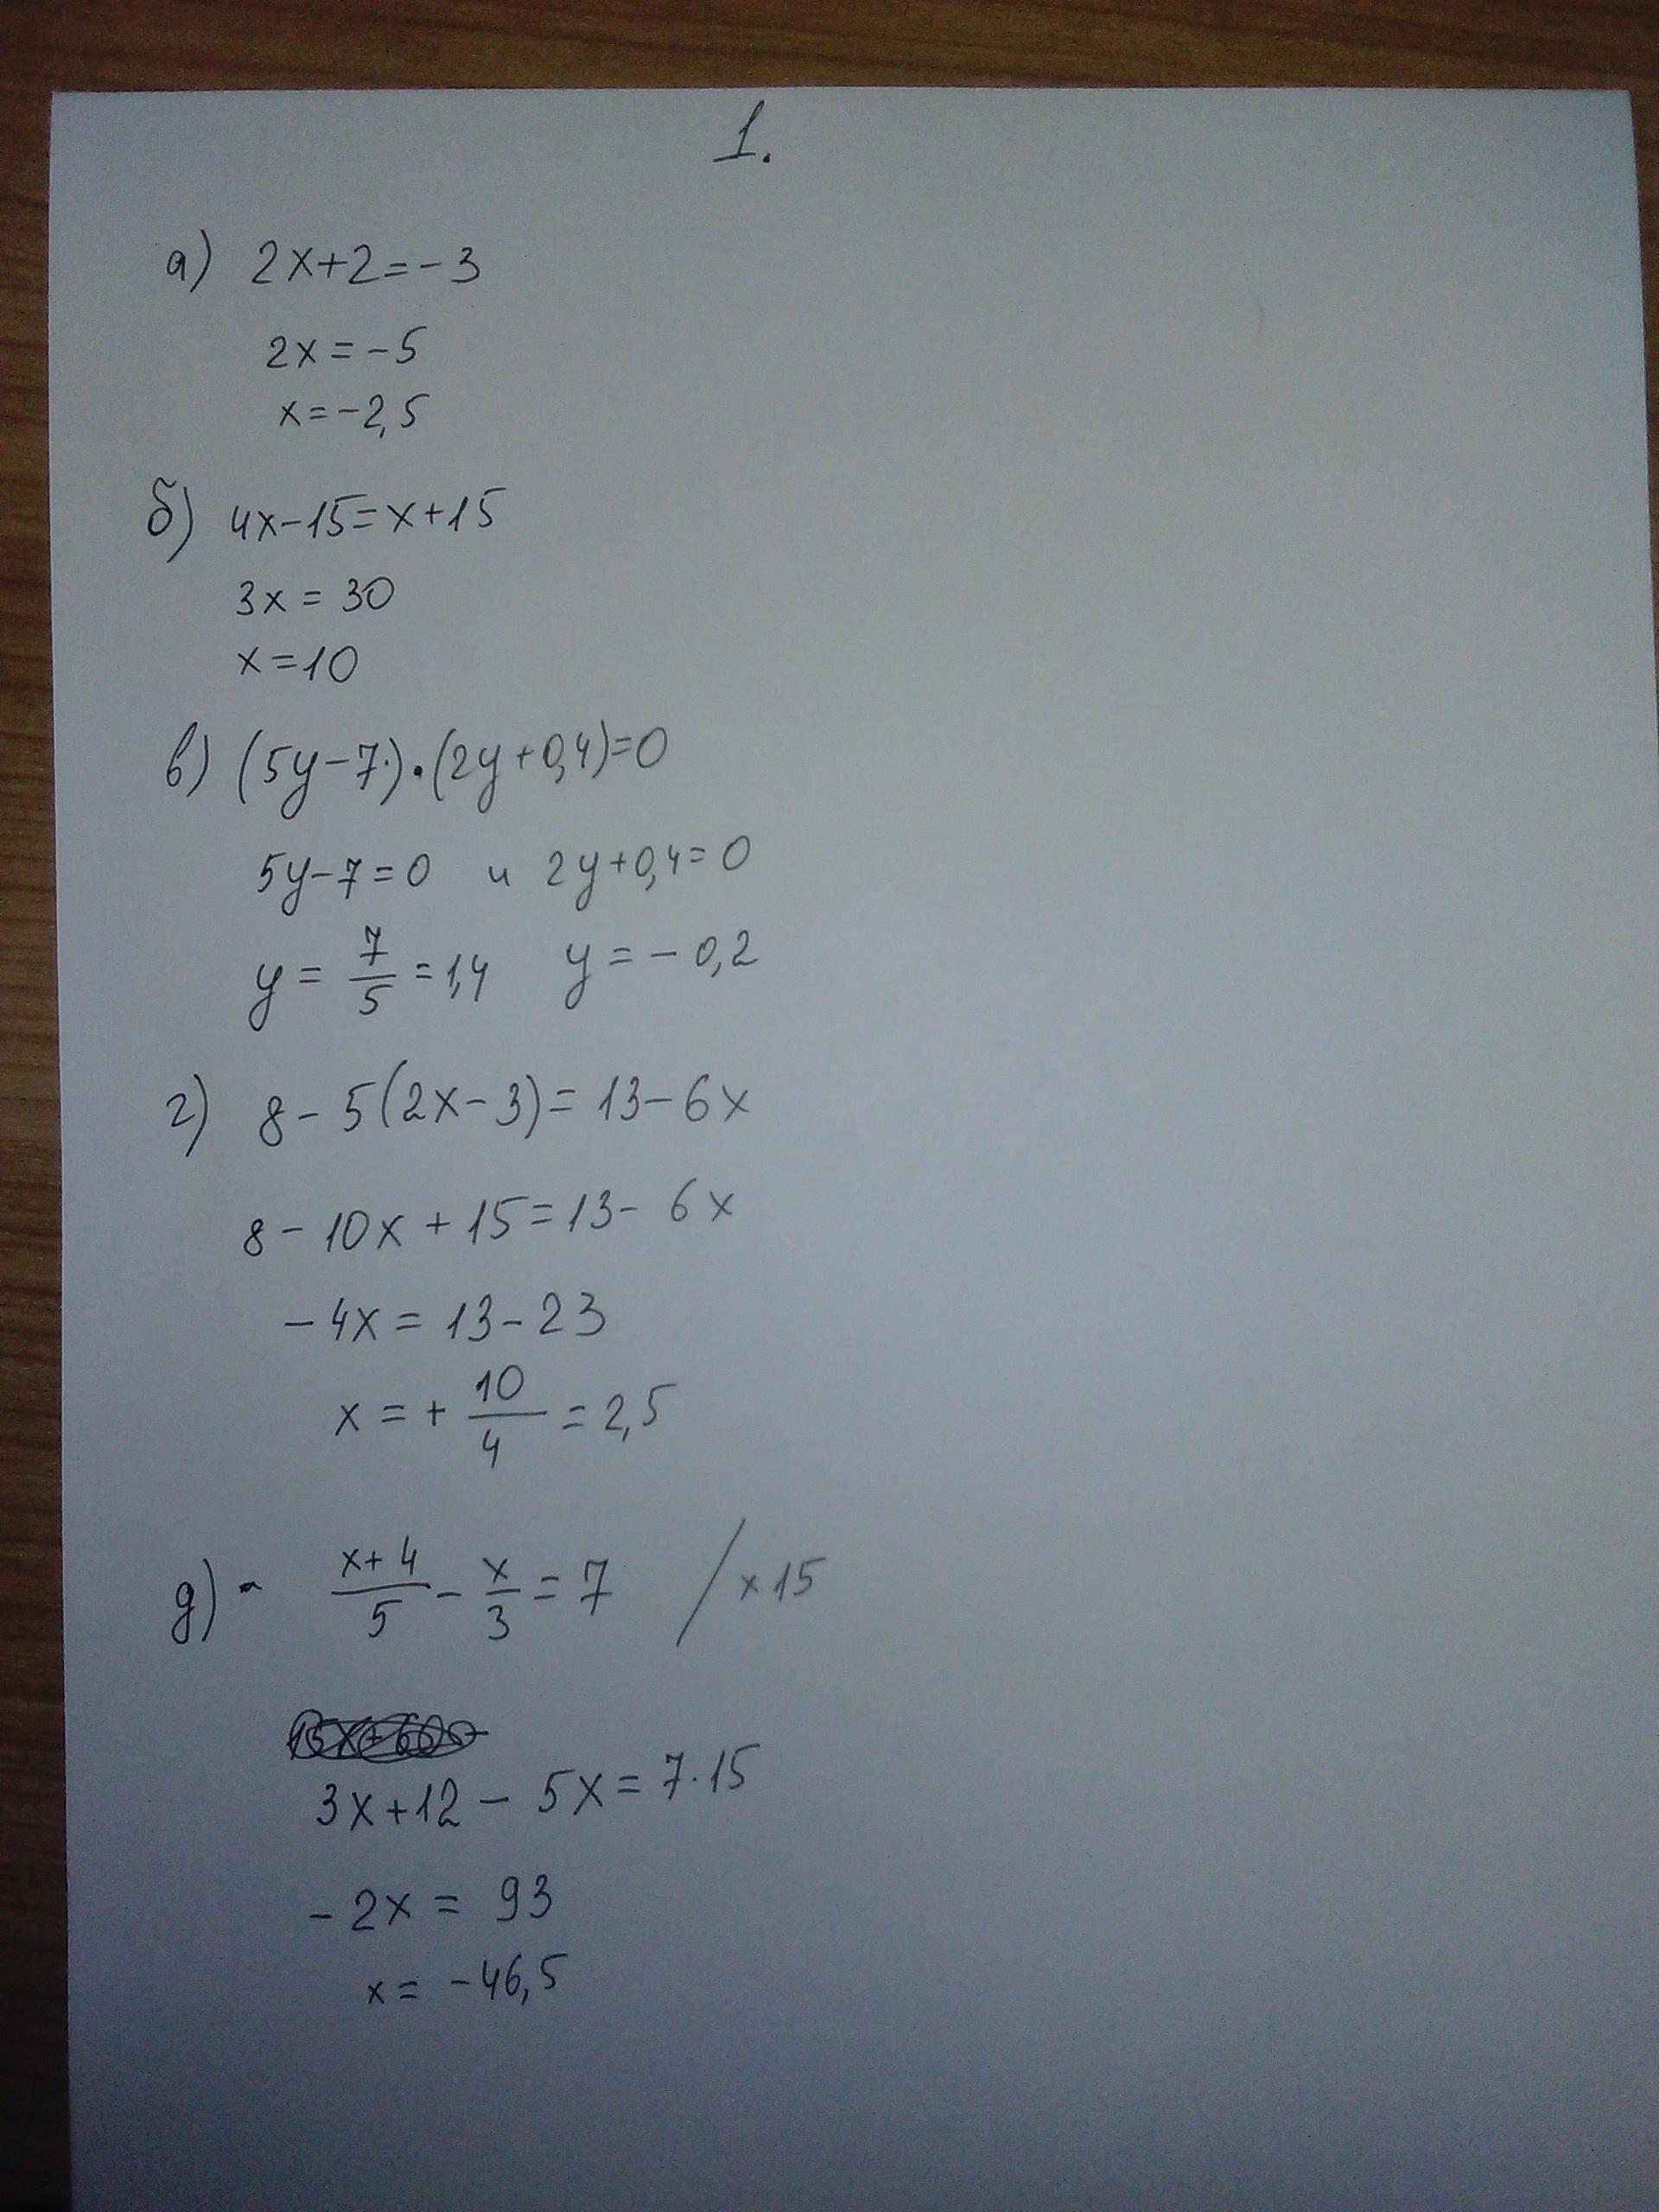 1.
а) 2x+2=-3
2x=-5
x=-2,5
б) 4x-15=x+15
3x=30
x=10
в) (5y-7)·(2y+0,4)=0
5y-7=0 и 2y+0,4=0
y=7/5=1,4 y=-0,2
г) 8-5(2x-3)=13-6x
8-10x+15=13-6x
-4x=13-23
x=+10/4=2,5
д) - x+4/5-x/3=7 /x15
3x+12-5x=7·15
-2x=93
x=-46,5